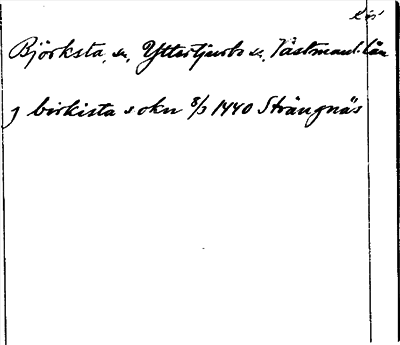 Björksta, sn, Yttertjurbo hd., Västmanl. län
J birkista sokn 8/3 1440 Strängnäs